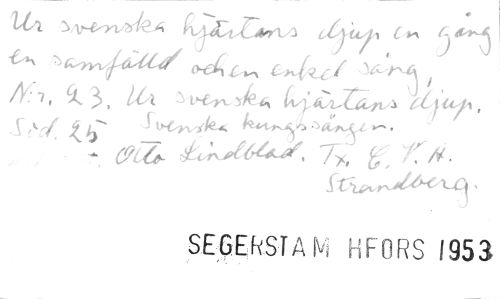 Ur svenska hjärtans djup en gång
en samfälld och en enkel sång,
N:r. 23. Ur svenska hjärtans djup.
Sid. 25 Svenska kungssången.
- Otto Lindblad. Tx. C. V. A.
Strandberg.
SEGERSTAM HFORS 1953